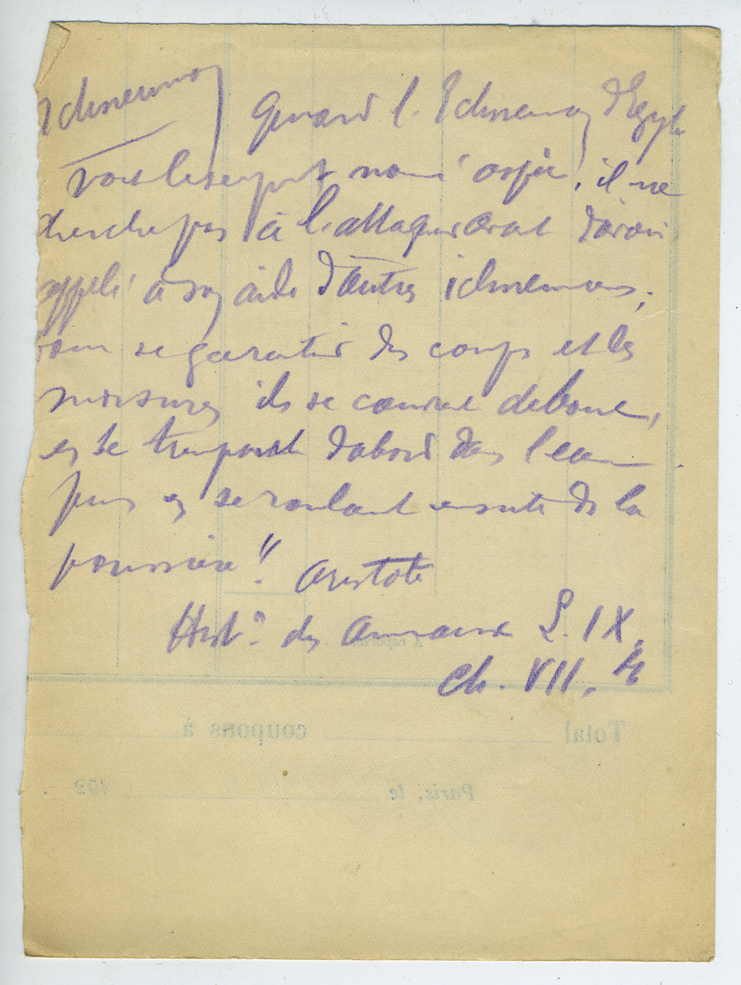 Ichneumon
Quand l'Ichneumon d'Egypte
voit le serpent nommé aspic, il ne
cherche pas à l'attaquer avant d'avoir
appelé à son aide d'autres ichneumons;
pour se garantir des coups et des
morsures ils se couvrent de boue,
en se trempant d'abord dans l'eau
puis en se roulant ensuite ds la
poussière". Aristote
Histre des Animaux L. IX.
Ch. VII.
Total coupons à
Paris, le 192